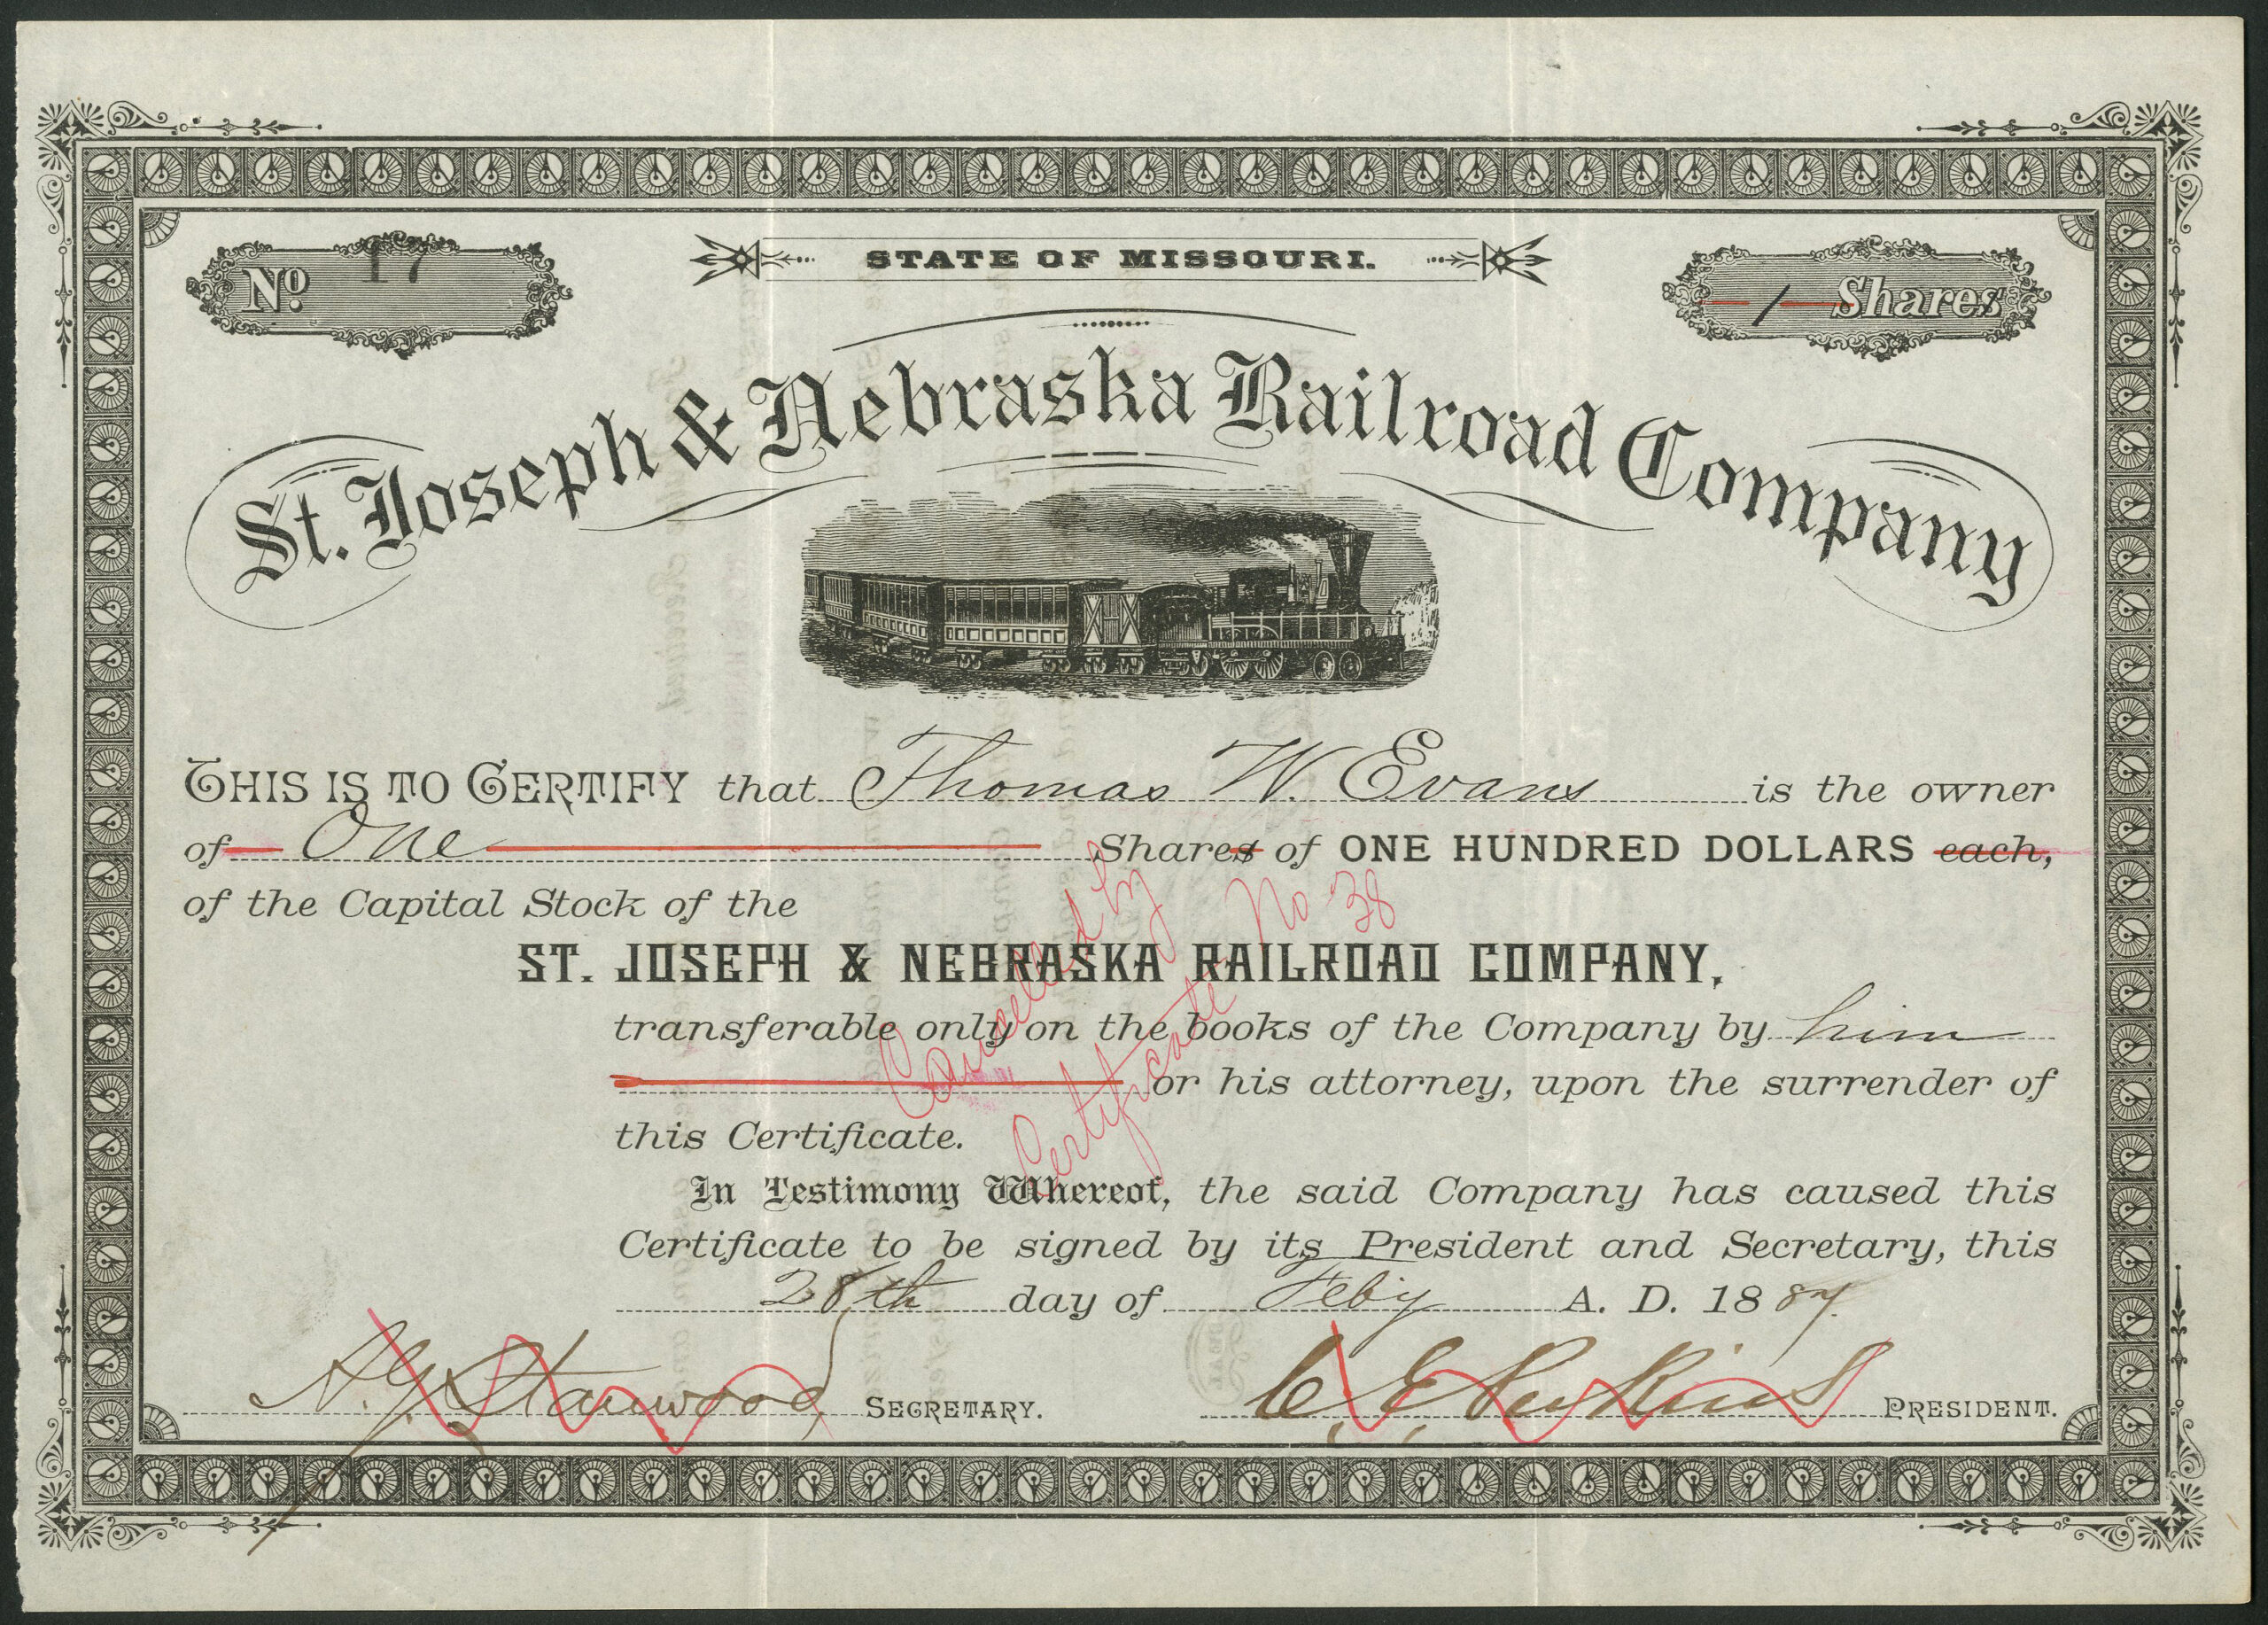 STATE OF MISSOURI.
No. 17
1 Shares
St. Joseph & Nebraska Railroad Company
THIS IS TO CERTIFY that Thomas W. Evans is the owner
of One Shares of ONE HUNDRED DOLLARS each,
of the Capital Stock of the
ST. JOSEPH & NEBRASKA RAILROAD COMPANY,
transferable only on the books of the Company by him
or his attorney, upon the surrender of
this Certificate.
In Testimony Whereof, the said Company has caused this
Certificate to be signed by its President and Secretary, this
28th day of Feby A. D. 1887.
H.G. Stanwood SECRETARY.
C E Perkins PRESIDENT.
Cancelled by
Certificate No 38